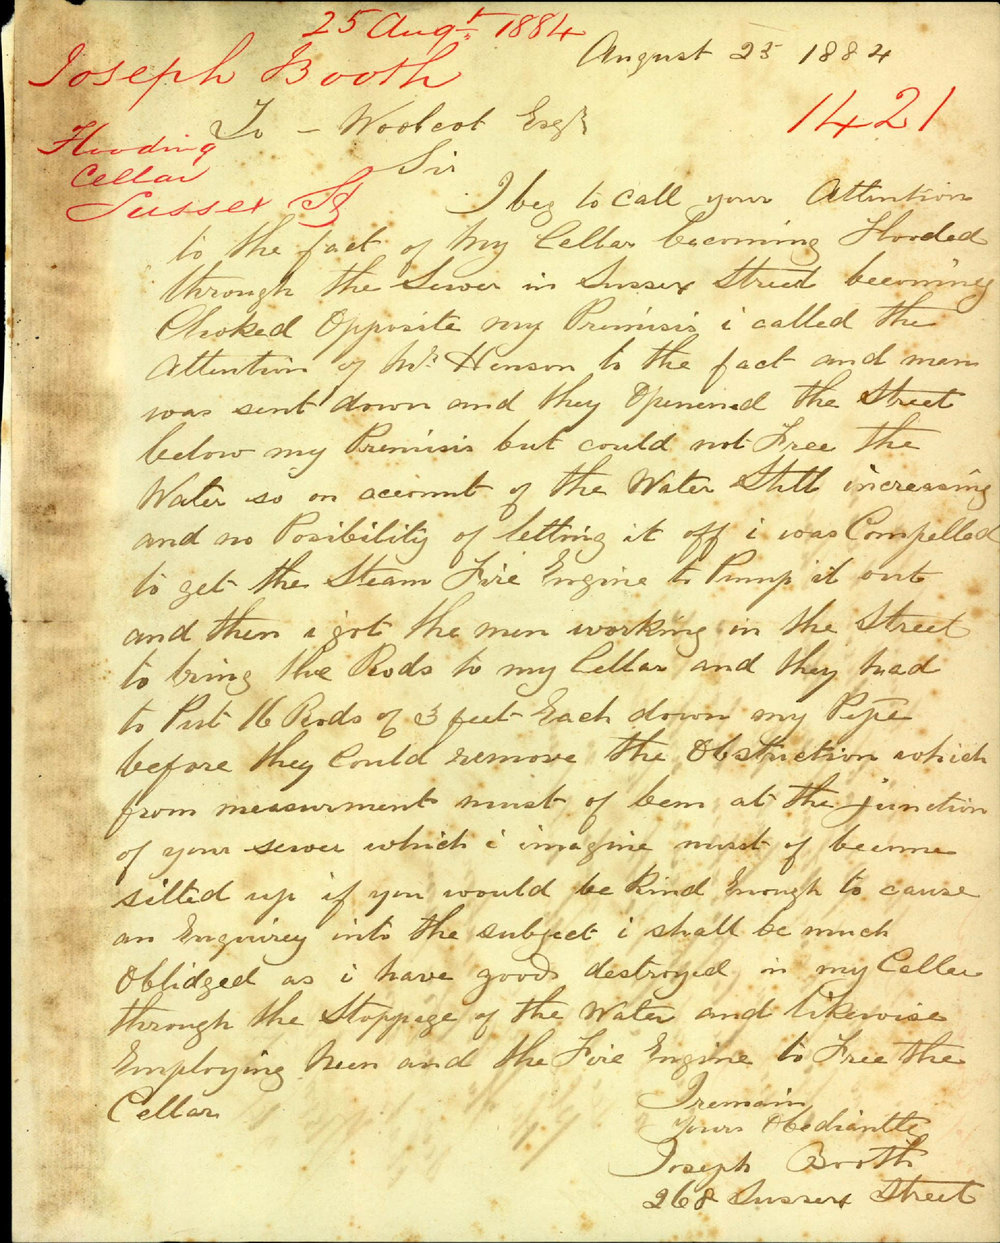 25 Augt 1884
Joseph Booth
August 25 1884
1421
To - Woolcot Esqr
Flooding
Cellar
Sussex St
Sir
I beg to call your Attention
to the fact of My Cellar becoming Flooded
through the Sewer in Sussex Street becoming
Choked Opposite my Premisis i called the
Attention of Mr Henson to the fact and men
was sent down and they Openened the Street
below my Premisis but could not Free the
Water so on account of the Water Still increasing
and no Posibility of letting it off i was Compelled
to get the Steam Fire Engine to Pump it out
and then i got the men working in the Street
to bring the Rods to my Cellar and they had
to Put 16 Rods of 3 feet Each down my Pipe
before they Could remove the Obstruction which
from measurment must of been at the junction
of your sewer which i imagine must of become
silted up if you would be Kind Enough to cause
an Enquirey into the subject i shall be much
Oblidged as i have goods destroyed in my Cellar
through the Stoppage of the Water and likewise
Employing Men and the Fire Engine to Free the
Cellar
I remain
Yours Obediantly
Joseph Booth
268 Sussex Street